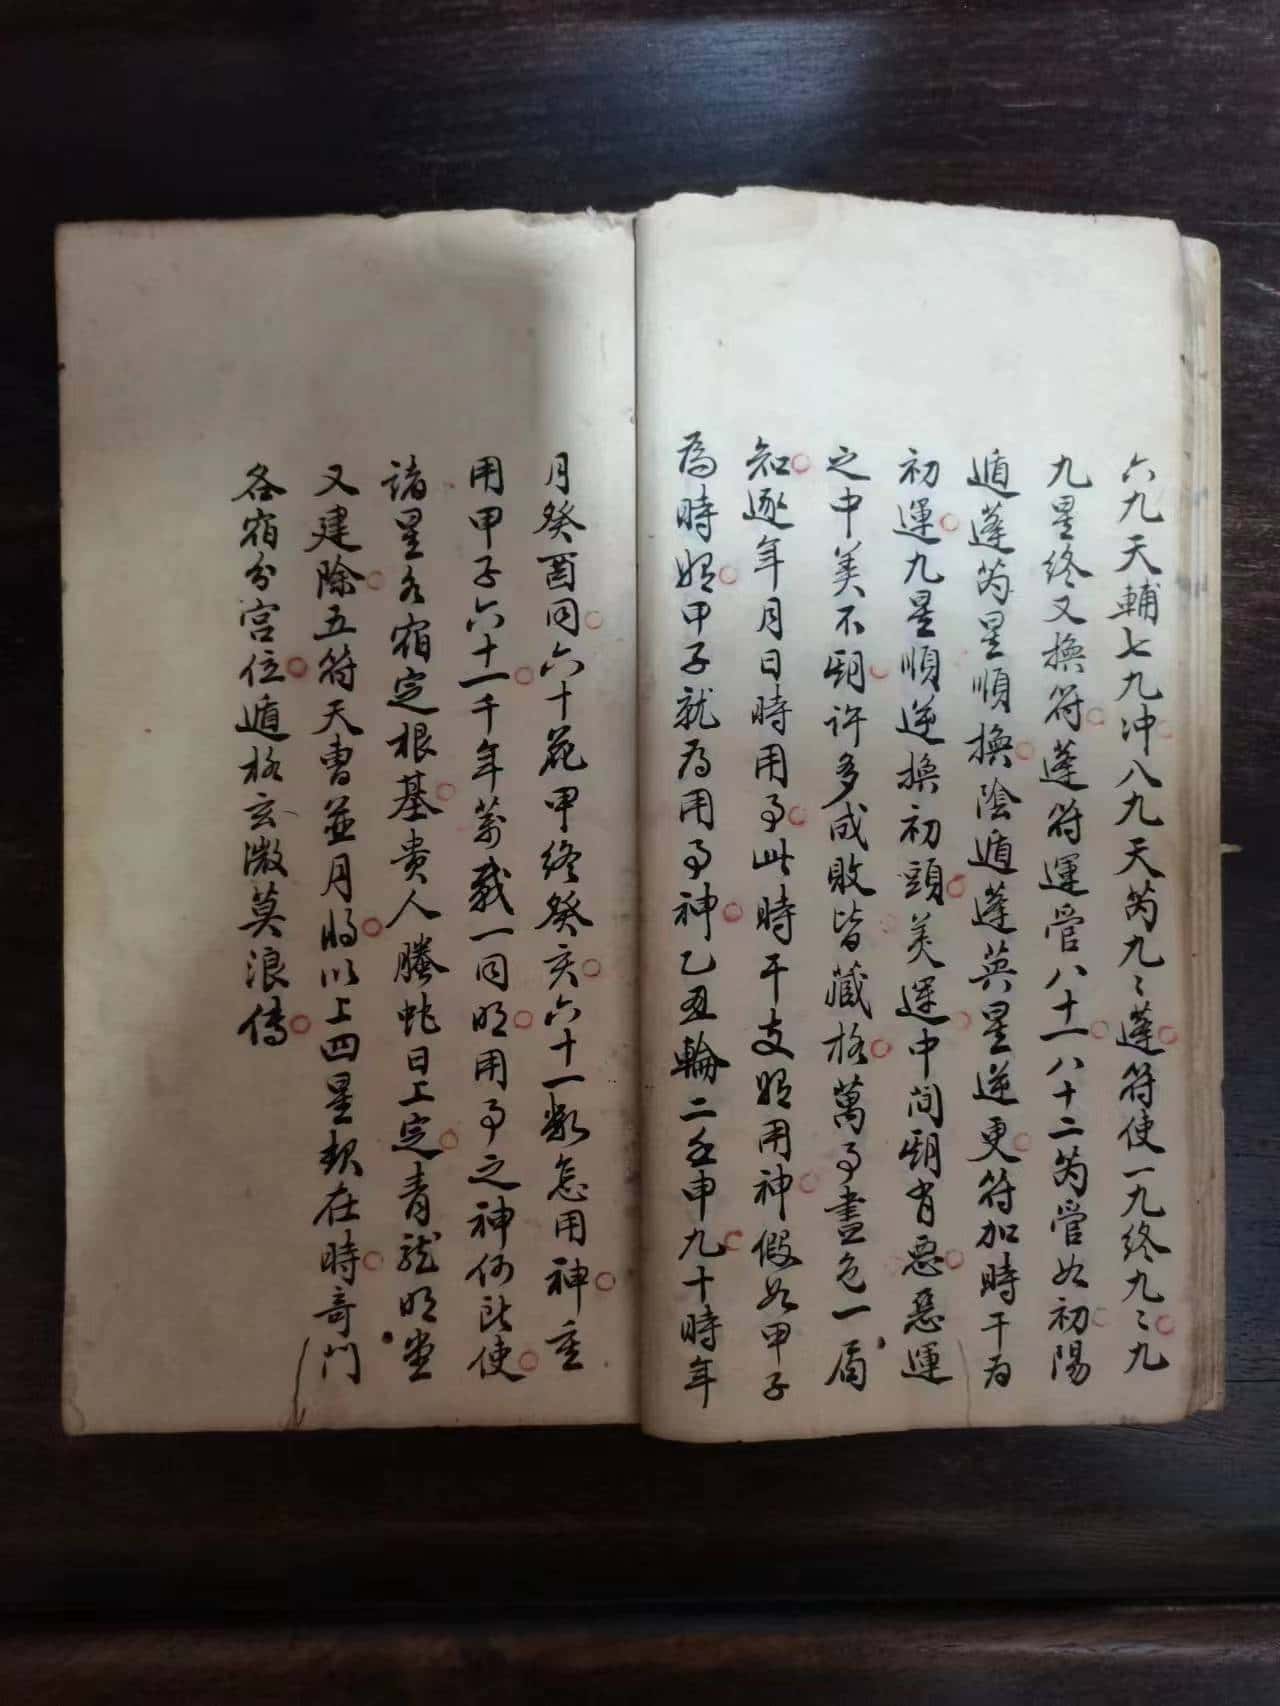 六九天輔七九冲八九天芮九〻蓬符使一九終九〻九
九星終又換符蓬符運管八十一八十二芮管如初陽
遁蓬芮星順換陰遁蓬英星逆更符加時干為
初運九星順逆換初頭美運中间有惡惡運
之中美不許多成敗皆藏格萬事盡包一局
知逐年月日時用事此時干支將用神假如甲子
為時將甲子就為用事神乙丑輪二壬申九十時年
月癸酉同六十花甲終癸亥六十一數怎用神重
用甲子六十一千年萬載一同明用事之神何所使
諸星各宿定根基貴人騰蛇日上定青龍明堂
又建除五符天曹並月將以上四星契在時奇門
各宿分宮位遁格玄微莫浪傳